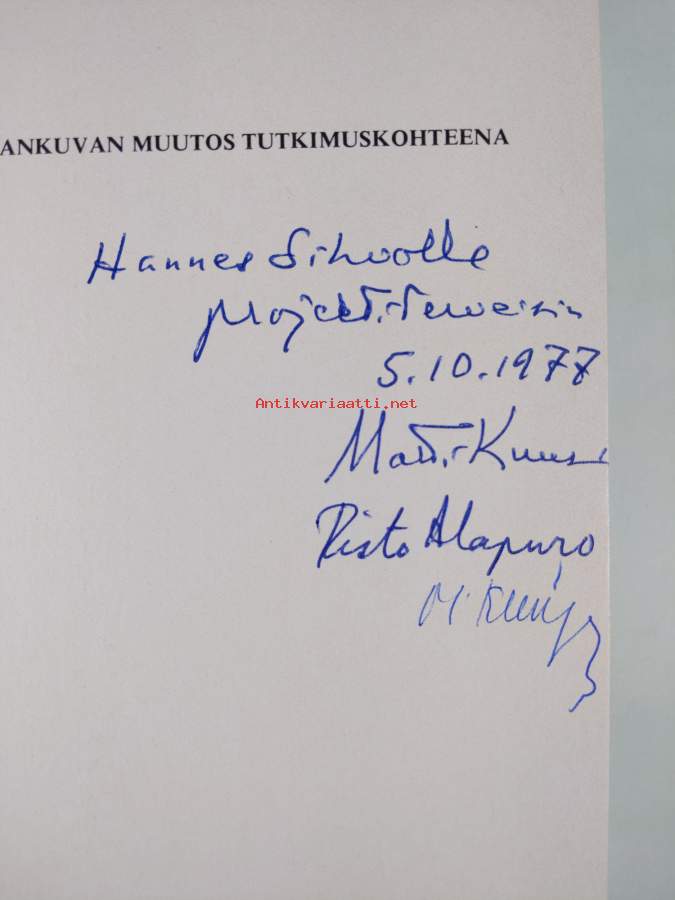 ANKUVAN MUUTOS TUTKIMUSKOHTEENA
Hannes Sihvolle
projektiterveisin
5.10.1977
Antikvariaatti.net
Matti Kuusi
Risto Alapuro
M. Klinge